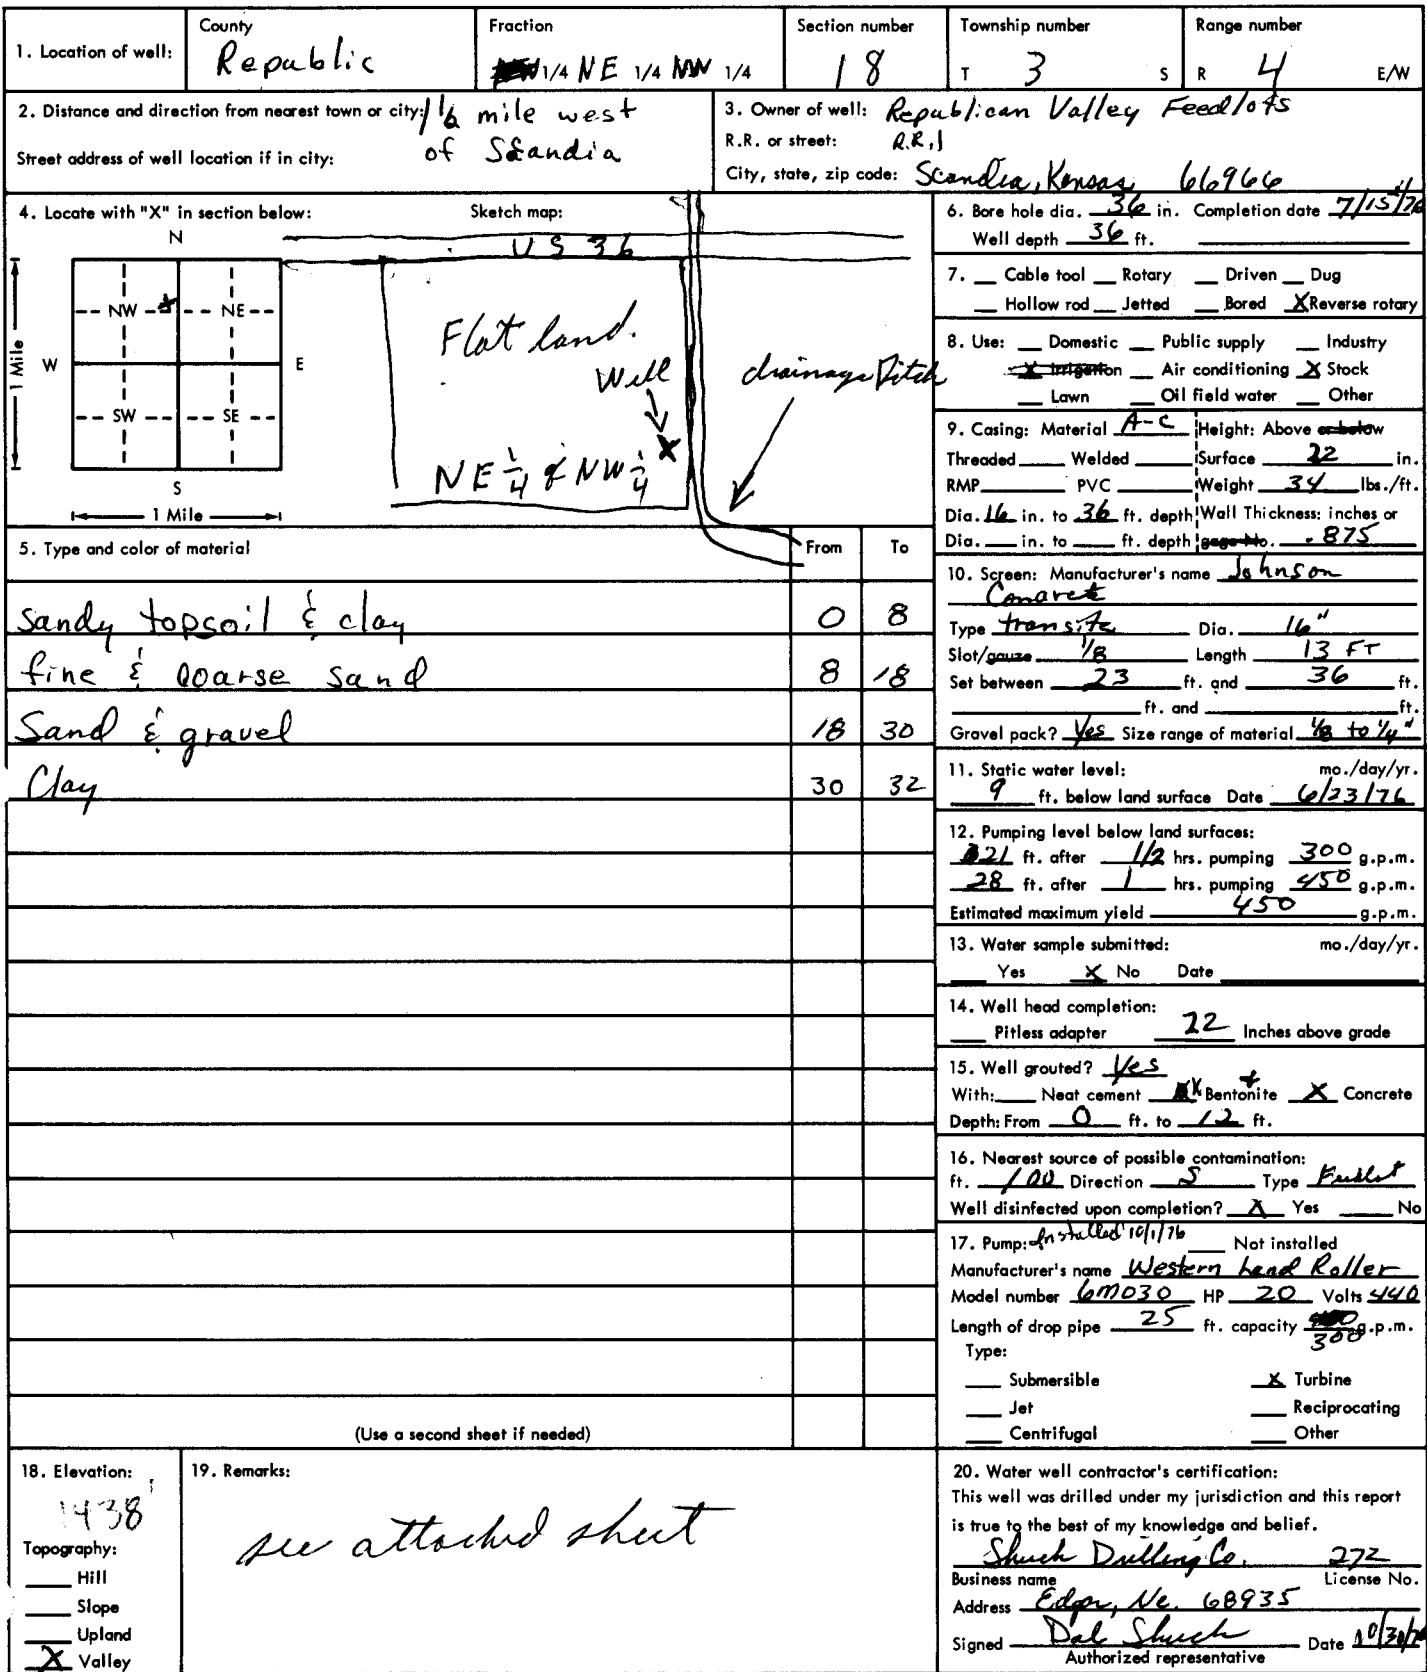 1. Location of well:
County
Republic
Fraction
1/4 NE 1/4 NW 1/4
Section number
18
Township number
T 3 S
Range number
R 4 E/W
2. Distance and direction from nearest town or city: 1/2 mile west
of Scandia
Street address of well location if in city:
3. Owner of well: Republican Valley Feedlots
R.R. or street: R.R.1
City, state, zip code: Scandia, Kansas 66966
4. Locate with "X" in section below:
Sketch map:
N
NW NE
W E
SW SE
S
1 Mile
1 Mile
US 36
Flat land.
Well
X
drainage Ditch
NE 1/4 of NW 1/4
5. Type and color of material From To
Sandy topsoil & clay 0 8
fine & coarse sand 8 18
Sand & gravel 18 30
Clay 30 32
(Use a second sheet if needed)
6. Bore hole dia. 36 in. Completion date 7/15/76
Well depth 36 ft.
7. Cable tool Rotary Driven Dug
Hollow rod Jetted Bored X Reverse rotary
8. Use: Domestic Public supply Industry
X Irrigation Air conditioning X Stock
Lawn Oil field water Other
9. Casing: Material A-C Height: Above or below
Threaded Welded Surface 22 in.
RMP PVC Weight 34 lbs./ft.
Dia. 16 in. to 36 ft. depth Wall Thickness: inches or
Dia. in. to ft. depth gage No. .875
10. Screen: Manufacturer's name Johnson
Concrete
Type transite Dia. 16"
Slot/gauze 1/8 Length 13 FT
Set between 23 ft. and 36 ft.
ft. and ft.
Gravel pack? Yes Size range of material 1/8 to 1/4"
11. Static water level: mo./day/yr.
9 ft. below land surface Date 6/23/76
12. Pumping level below land surfaces:
21 ft. after 1/2 hrs. pumping 300 g.p.m.
28 ft. after 1 hrs. pumping 450 g.p.m.
Estimated maximum yield 450 g.p.m.
13. Water sample submitted: mo./day/yr.
Yes X No Date
14. Well head completion:
Pitless adapter 22 Inches above grade
15. Well grouted? Yes
With: Neat cement X Bentonite + X Concrete
Depth: From 0 ft. to 12 ft.
16. Nearest source of possible contamination:
ft. 100 Direction S Type Feedlot
Well disinfected upon completion? X Yes No
17. Pump: Installed 10/1/76 Not installed
Manufacturer's name Western Land Roller
Model number 6M030 HP 20 Volts 440
Length of drop pipe 25 ft. capacity 300 g.p.m.
Type:
Submersible X Turbine
Jet Reciprocating
Centrifugal Other
18. Elevation:
1438'
Topography:
Hill
Slope
Upland
X Valley
19. Remarks:
see attached sheet
20. Water well contractor's certification:
This well was drilled under my jurisdiction and this report
is true to the best of my knowledge and belief.
Shuck Drilling Co. 272
Business name License No.
Address Edgar, Ne. 68935
Signed Dale Shuck Date 10/30/76
Authorized representative